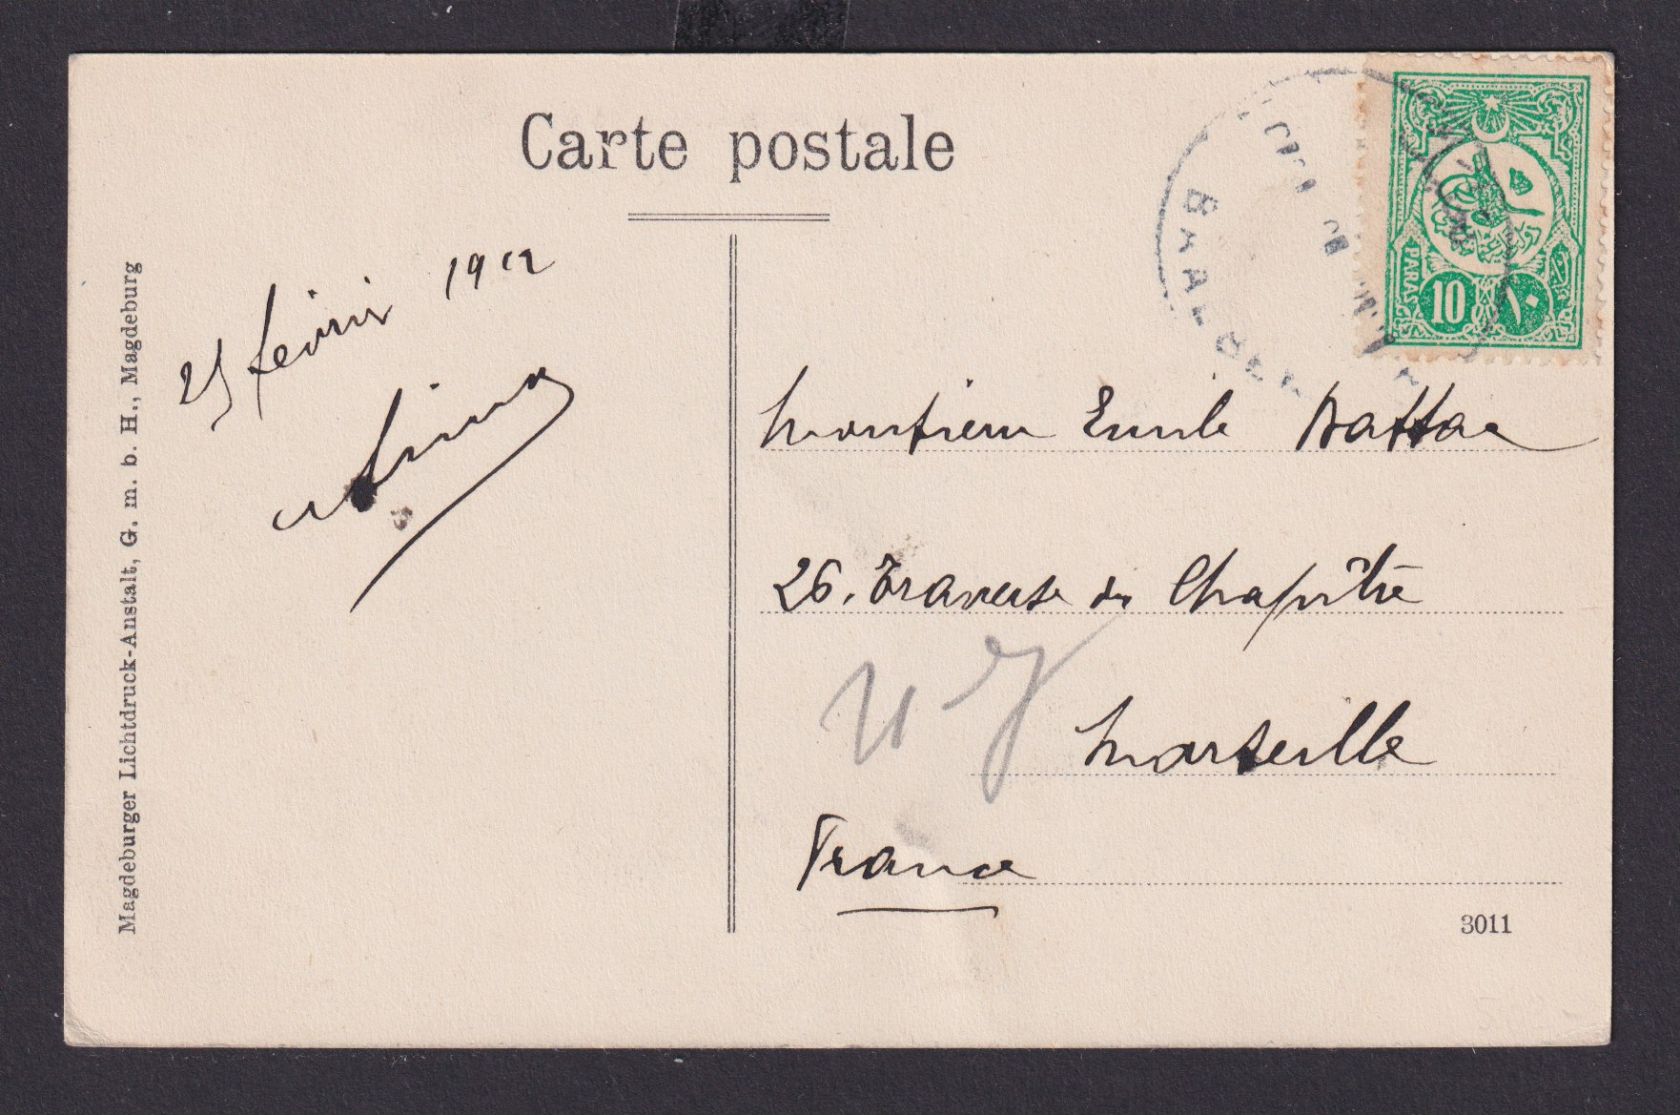 Carte postale
25 février 1912
Magdeburger Lichtdruck-Anstalt, G. m. b. H., Magdeburg
PARAS
10 ١٠
Monsieur Emile
26. Traverse du Chapitre
Marseille
France
3011